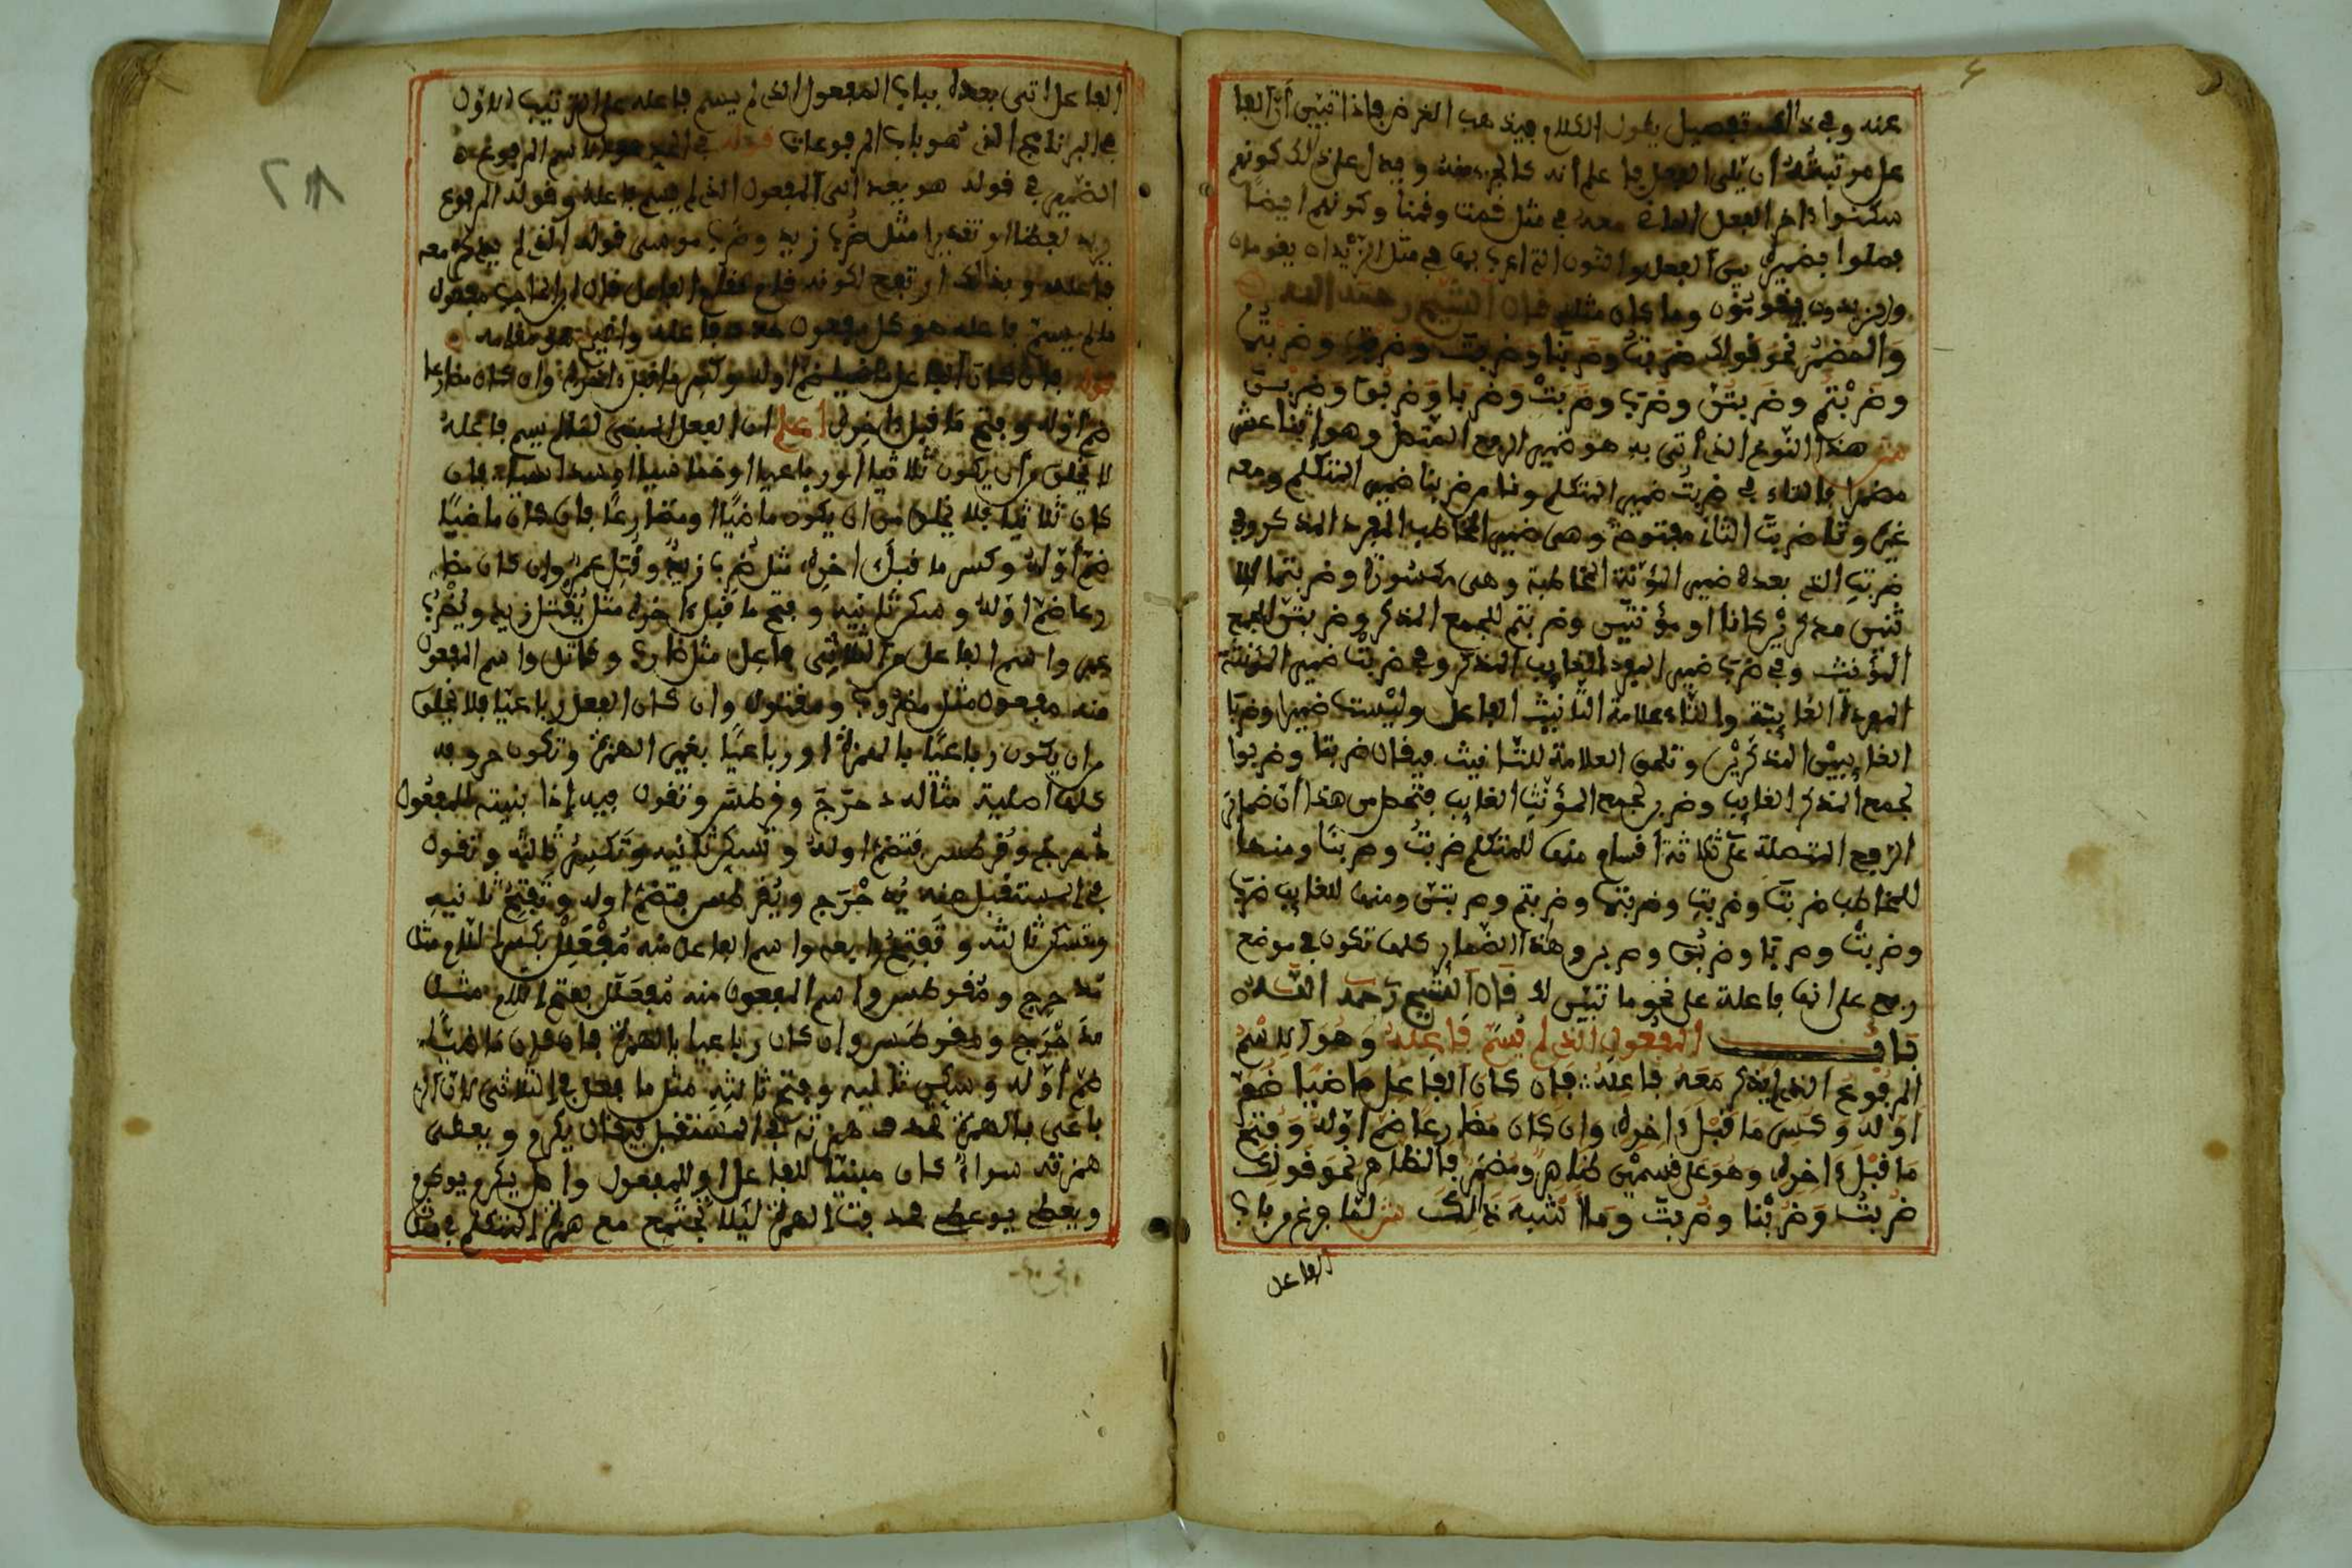 عنه وفي ذالك تفصيل يطول الكلام فيذهب الغرض فإذا تبين أن الفا
عل مرتبته أن يلي الفعل فاعلم أنه كالجزء منه ويدل على ذلك كونهم
سكنوا ءاخر الفعل الماضي معه في مثل قمت وقمنا وكونهم ايضا
فصلوا بضميره بين الفعل والنون التي اعرب بها في مثل الزيدان يقومان
والزيدون يقومون وما كان مثله قال الشيخ رحمه الله
والمضمر نحو قولك ضربت وضربنا وضربت وضربت وضربتما
وضربتم وضربتن وضرب وضربت وضربا وضربوا وضربن
ش هذا النوع الذي أتى به هو ضمير الرفع المتصل وهو اثنا عش
مضمرا فالتاء في ضربت ضمير المتكلم ونا من ضربنا ضمير المتكلم ومعه
غيره وتا ضربت الثاني مفتوحة وهي ضمير المخاطب المفرد المذكر وفي
ضربت الذي بعده ضمير المؤنثة المخاطبة وهي مكسورة وضربتما للا
ثنين مذكرين كانا او مؤنثين وضربتم للجمع المذكر وضربتن لجمع
المؤنث وفي ضرب ضمير المفرد الغايب المذكر وفي ضربت ضمير المؤنثة
المفردة الغايبة والتاء علامة التأنيث الفاعل وليست ضميرا وضربا
الغايبين المذكرين وتلحق العلامة للتانيث فيقال ضربتا وضربوا
لجمع المذكر الغايب وضربن لجمع المؤنث الغايب فتحصل من هذا أن ضماير
الرفع المتصلة على ثلاثة أقسام منها للمتكلم ضربت وضربنا ومنها
للمخاطب ضربت وضربت وضربتما وضربتم وضربتن ومنها للغايب ضرب
وضربت وضربا وضربوا وضربن وهذه الضماير كلها تكون في موضع
رفع على انها فاعلة على نحو ما تبين لك قال الشيخ رحمه الله
باب المفعول الذي لم يسم فاعله وهو الاسم
المرفوع الذي لم يذكر معه فاعله فإن كان الفاعل ماضيا ضم
اوله وكسر ما قبل ءاخره وان كان مضارعا ضم اوله وفتح
ما قبل ءاخره وهو على قسمين ظاهر ومضمر فالظاهر نحو قولك
ضربت وضربنا وضربت وما أشبه ذلك ش لما فرغ من باب
الفاعل
الفاعل اتى بعده بباب المفعول الذي لم يسم فاعله على الترتيب الاول
في البرنامج الذي هو باب المرفوعات قوله هو الاسم المرفوع
الضمير في قوله هو يعود الى المفعول الذي لم يسم فاعله وقوله المرفوع
يريد لفظا او تقديرا مثل ضرب زيد وضرب موسى قوله الذي لم يذكر معه
فاعله وبذالك ارتفع لكونه قام مقام الفاعل قال ابن الحاجب مفعول
ما لم يسم فاعله هو كل مفعول حذف فاعله واقيم هو مقامه
قوله فان كان الفاعل ماضيا ضم اوله وكسر ما قبل ءاخره وان كان مضارعا
ضم اوله وفتح ما قبل ءاخره اعلم ان الفعل المبني لما لم يسم فاعله
لا يخلو من أن يكون ثلاثيا او رباعيا او خماسيا او سداسيا فان
كان ثلاثيا فلا يخلو من ان يكون ماضيا او مضارعا فان كان ماضيا
ضم أوله وكسر ما قبل اخره مثل ضرب زيد وقتل عمر وان كان مضا
رعا ضم اوله وسكن ثانيه وفتح ما قبل ءاخره مثل يقتل زيد ويضرب
عمر واسم الفاعل من الثلاثي فاعل مثل ضارب وقاتل واسم المفعول
منه مفعول مثل مضروب ومقتول وان كان الفعل رباعيا فلا يخلو
من ان يكون رباعيا بالهمزة او رباعيا بغير الهمزة وتكون حروفه
كلها اصلية مثاله دحرج وقرطس وتقول فيه إذا بنيته للمفعول
دحرج وقرطس فتضم اوله وتسكن ثانيه وتكسر ثالثه وتقول
في المستقبل منه يدحرج ويقرطس فتضم اوله وتفتح ثانيه
وتسكن ثالثه وتفتح رابعه واسم الفاعل منه مفعلل بكسر اللام مثل
مدحرج ومقرطس واسم المفعول منه مفعلل بفتح اللام مثل
مدحرج ومقرطس وان كان رباعيا بالهمزة فان كان ماضيا
ضم أوله وسكن ثانيه وفتح ثالثه مثل ما فعل في الثلاثي لان الر
باعي بالهمزة تحذف همزته في المستقبل فيقال يكرم ويعطى
همزته سواء كان مبنيا للفاعل او للمفعول واصل يكرم يوكرم
ويعطي يوعطي فحذفت الهمزة ليلا تجتمع مع همزة المتكلم في مثل